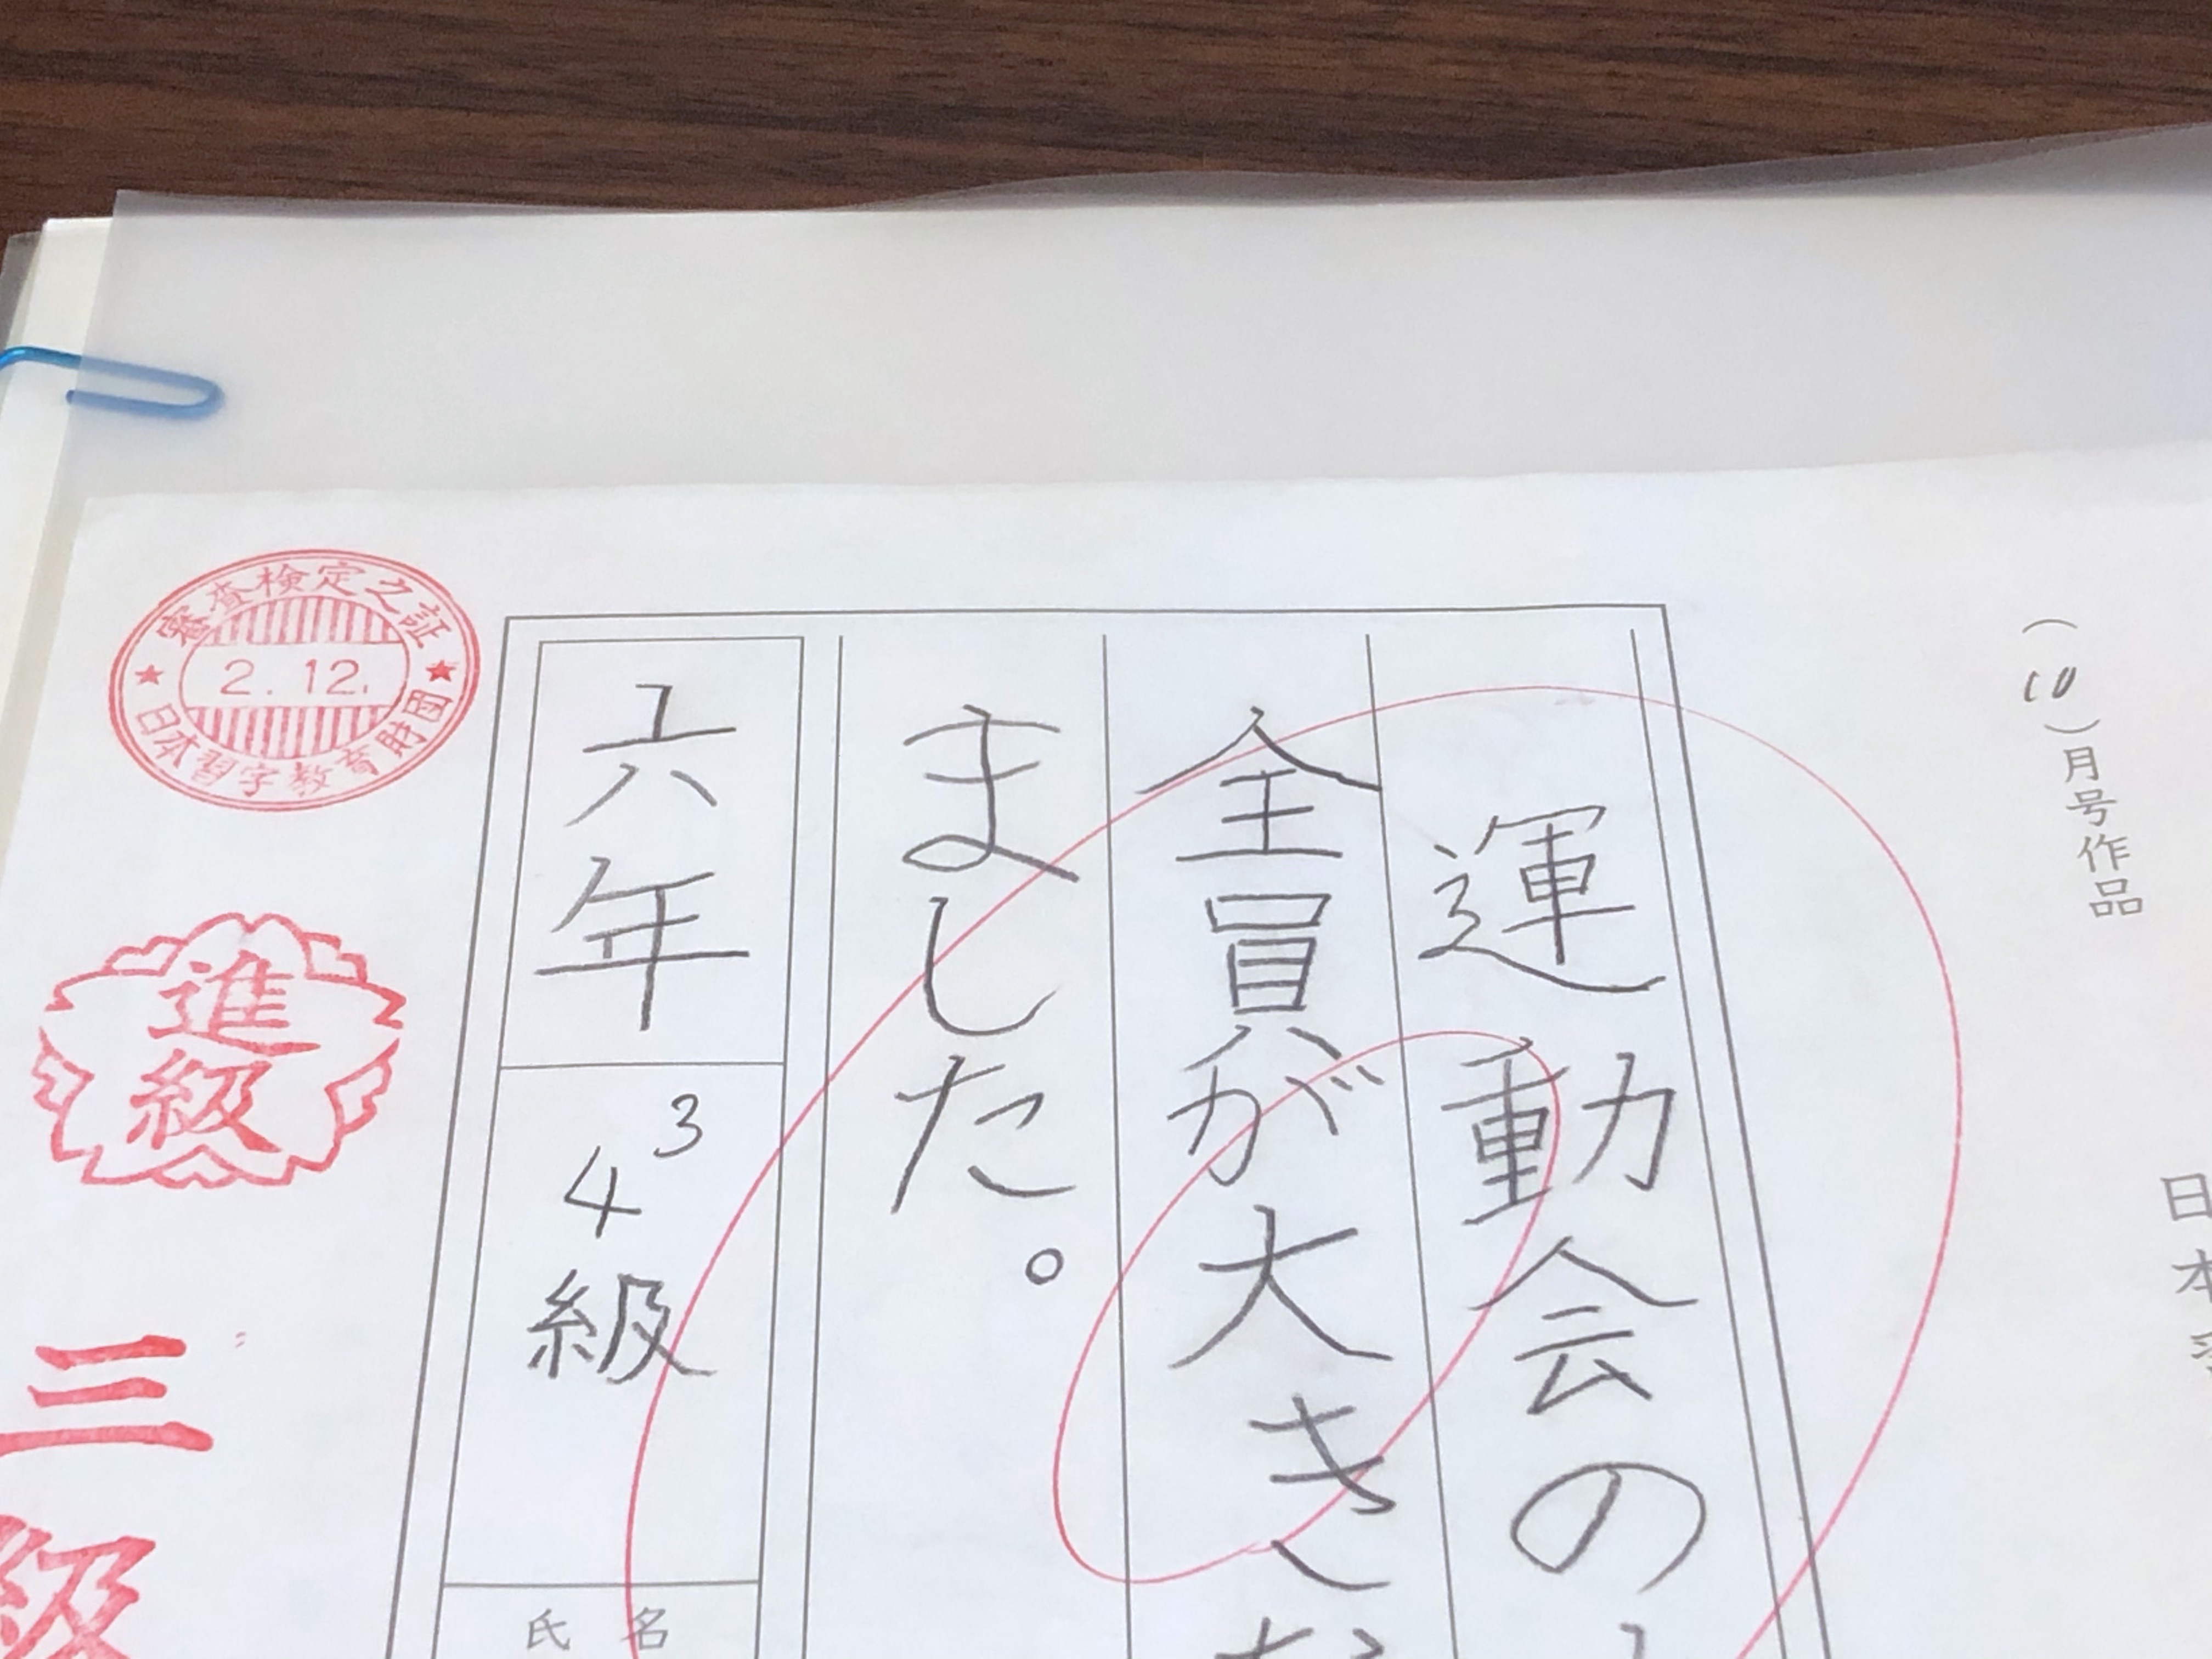 (10)月号作品
日本
運動会の
全員が大きな
ました。
六年
3
4級
氏名
審査検定之証
2.12.
日本習字教育財団
進級
三級